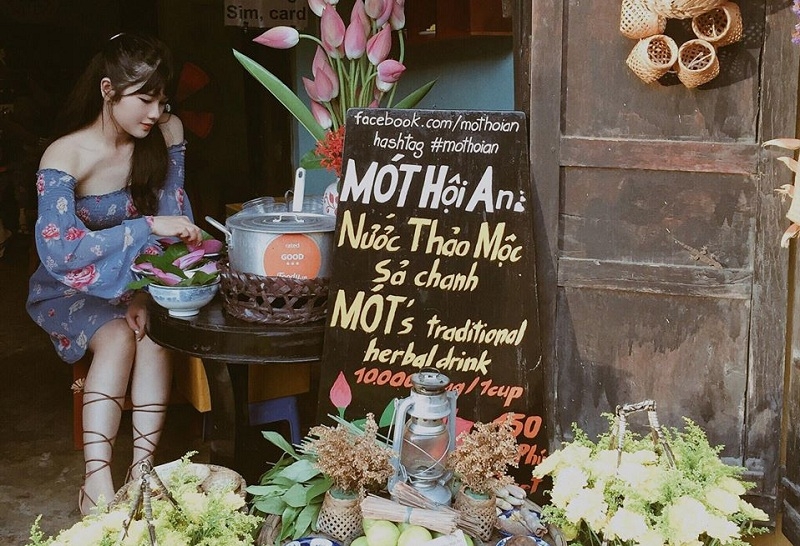 Sim, card
facebook.com/mothoian
hashtag #mothoian
MÓT Hội An:
NƯỚC THẢO MỘC
Sả chanh
MÓT's traditional
herbal drink
10.000 /1cup
rated
GOOD
450